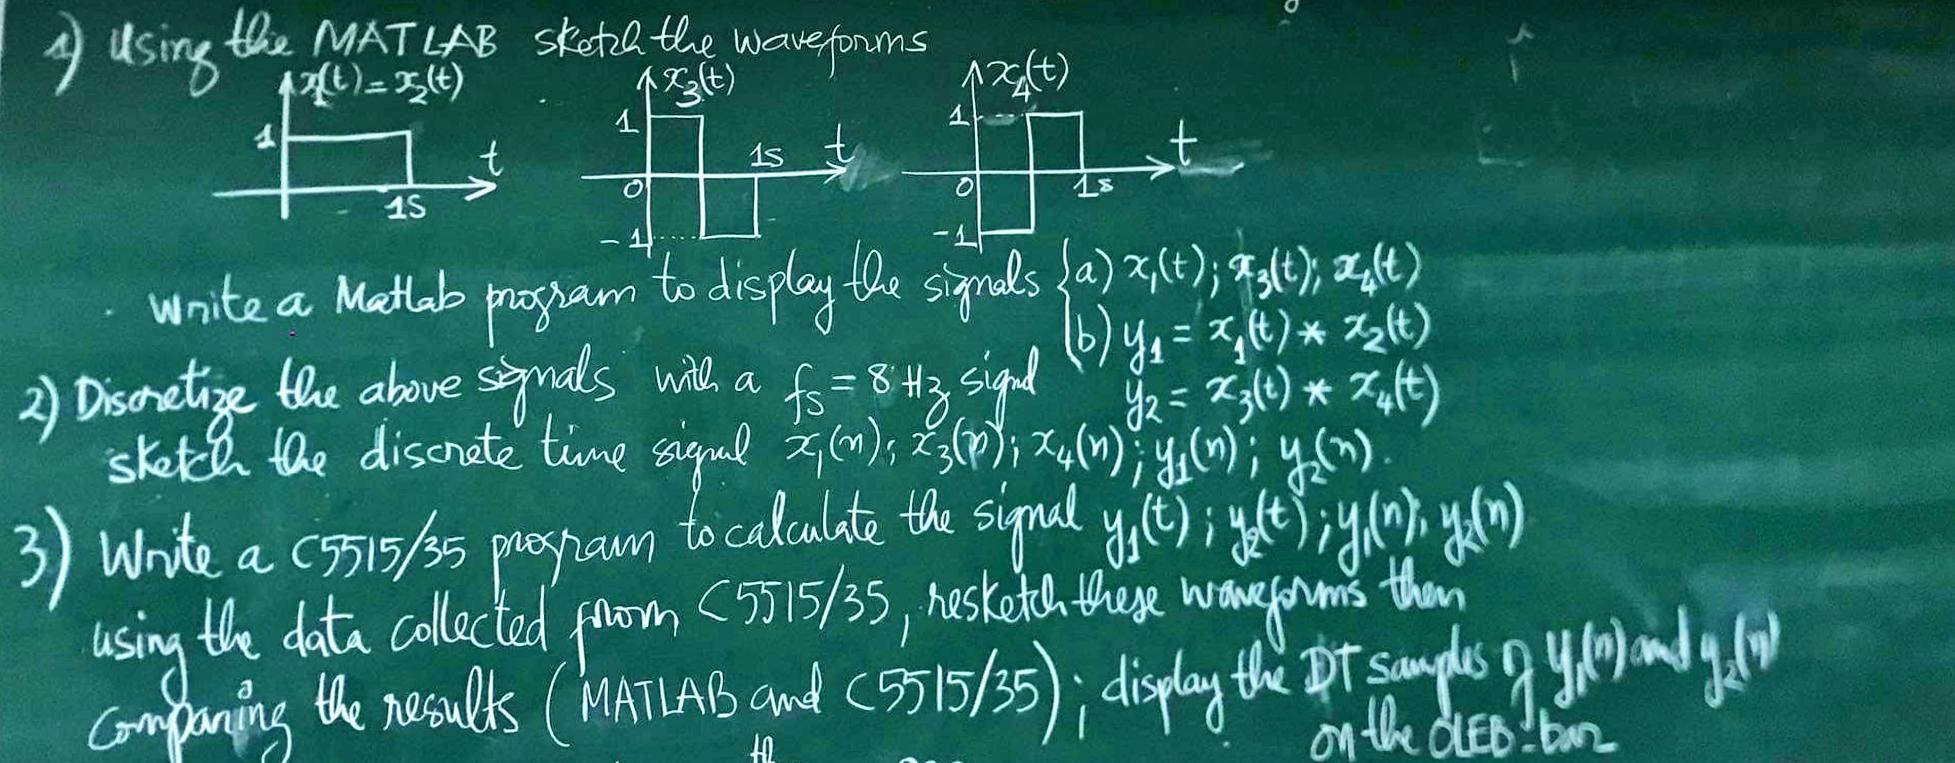 1) Using the MATLAB sketch the waveforms
x1(t) = x2(t)
x3(t)
x4(t)
1
t
1s
1
0
-1
1s
t
1
0
-1
1s
t
. Write a Matlab program to display the signals {a) x1(t); x3(t); x4(t)
b) y1 = x1(t) * x2(t)
y2 = x3(t) * x4(t)
2) Discretize the above signals with a fs = 8 Hz signal
sketch the discrete time signal x1(n); x3(n); x4(n); y1(n); y2(n).
3) Write a C5515/35 program to calculate the signal y1(t); y2(t); y1(n); y2(n)
using the data collected from C5515/35, resketch these waveforms then
comparing the results (MATLAB and C5515/35); display the DT samples of y1(n) and y2(n)
on the OLED-bar
th